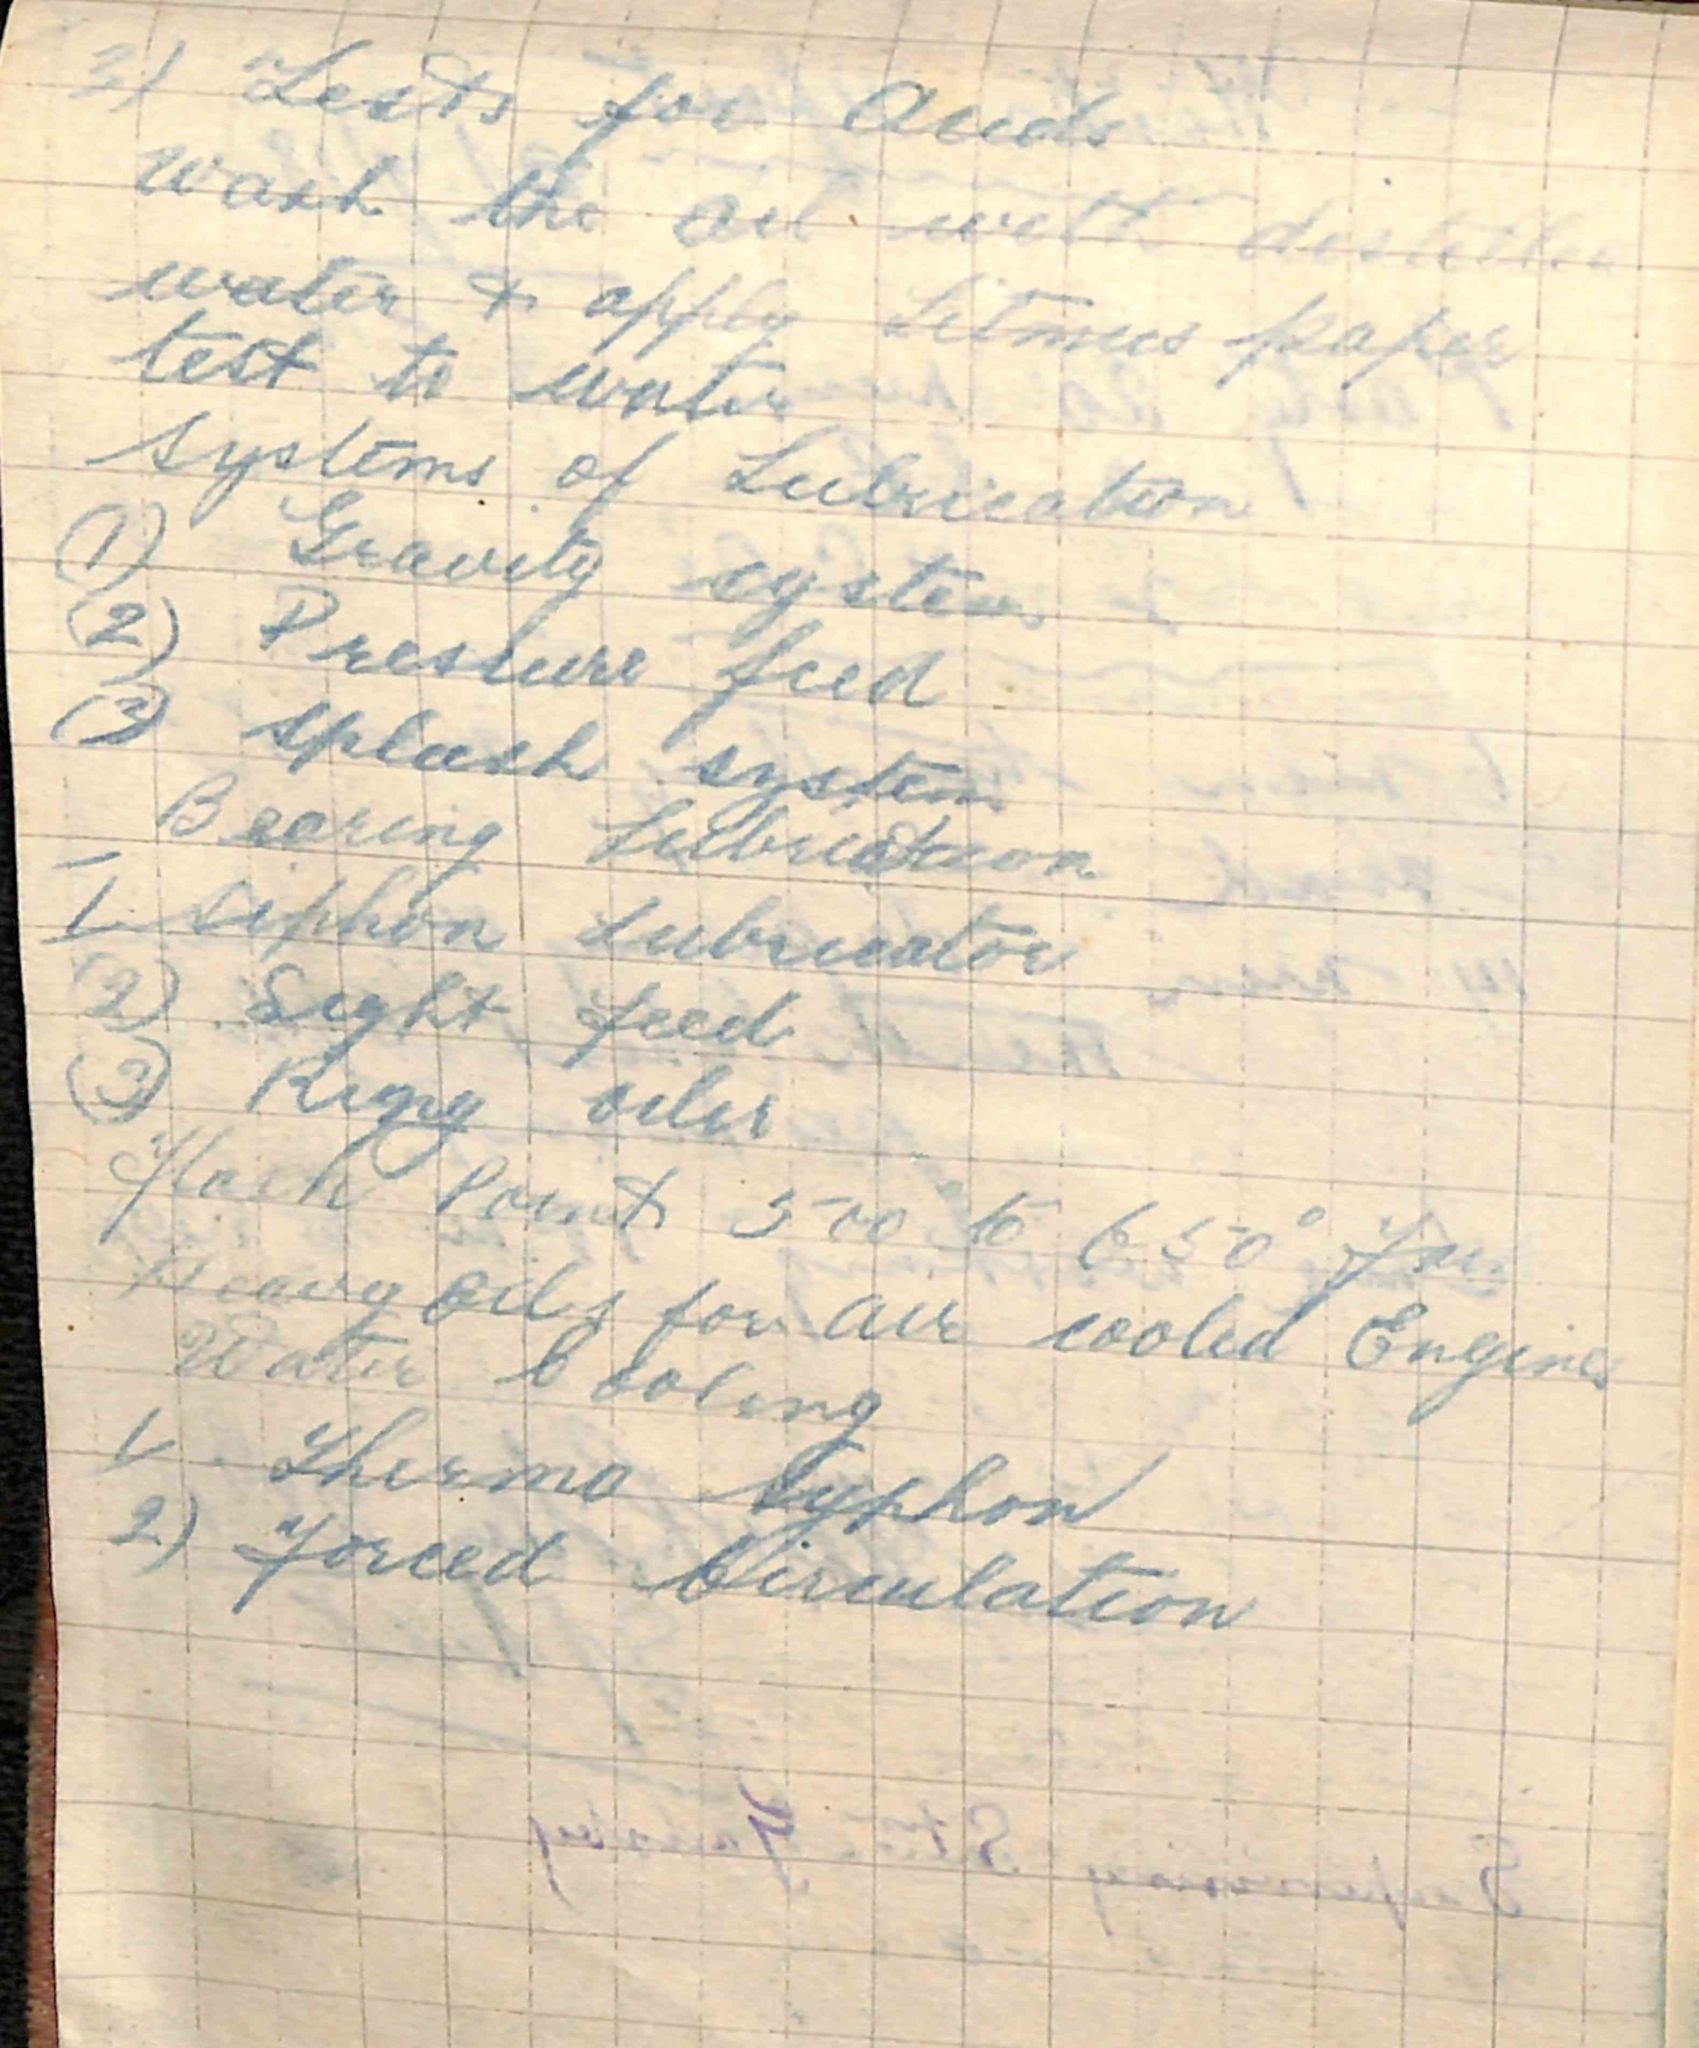 3) Tests for Acids
Wash the oil with distilled
water & apply Litmus paper
test to water
Systems of Lubrication
(1) Gravity system
(2) Pressure feed
(3) Splash system
Bearing Lubrication
1 Siphon Lubricator
(2) Sight feed
(3) Ring oiler
Flash Point 500 to 650°
Heavy oils for air cooled Engines
Water Cooling
1. Thermo Syphon
2) Forced Circulation